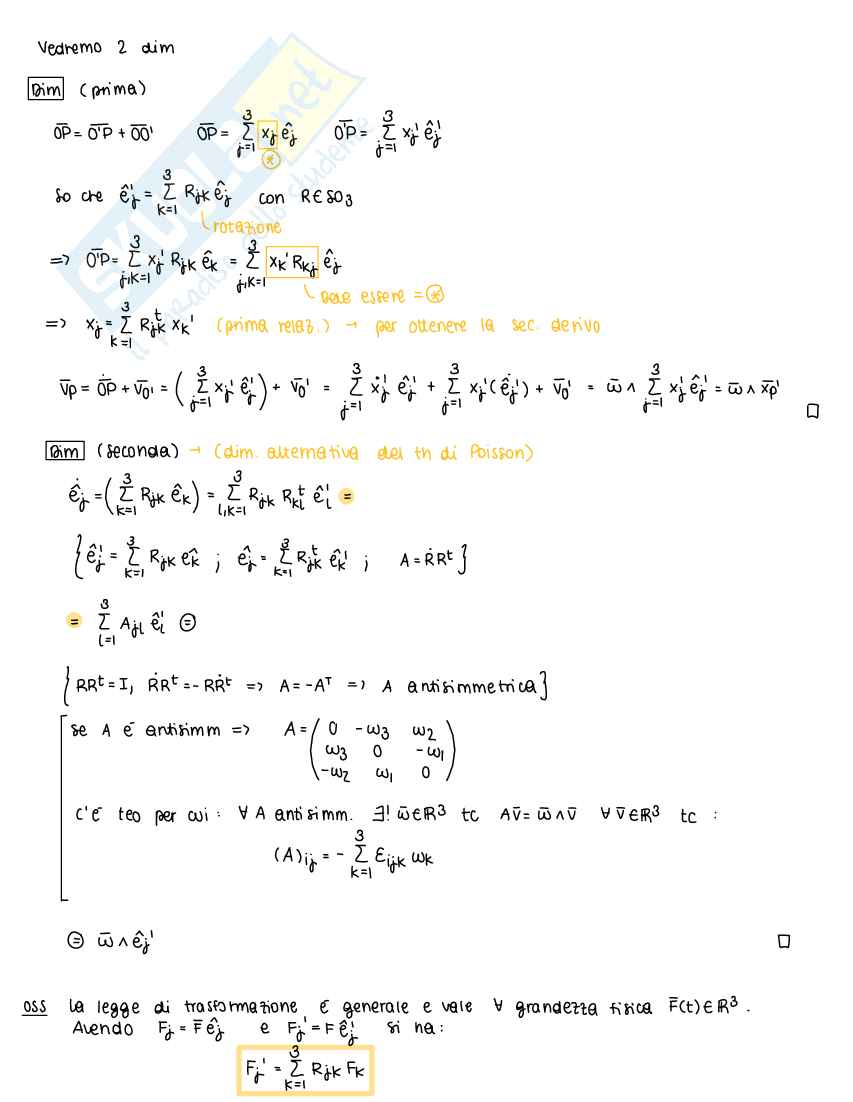 Vedremo 2 dim
Dim (prima)
O̅P̅ = O̅'̅P̅ + O̅O̅'̅   O̅P̅ = Σ_{j=1}^{3} x_j ê_j   O̅'̅P̅ = Σ_{j=1}^{3} x_j' ê_j'
⊛
So che ê_j' = Σ_{k=1}^{3} R_{jk} ê_j con R∈SO_3
rotazione
=> O̅'̅P̅ = Σ_{j,k=1}^{3} x_j' R_{jk} ê_k = Σ_{j,k=1}^{3} x_k' R_{kj} ê_j
deve essere = ⊛
=> x_j = Σ_{k=1}^{3} R_{jk}^t x_k' (prima relaz.) → per ottenere la sec. derivo
v̄_P = O̅Ṗ + v̄_{O'} = (Σ_{j=1}^{3} x_j' ê_j')˙ + v̄_O' = Σ_{j=1}^{3} ẋ_j' ê_j' + Σ_{j=1}^{3} x_j' (ê̇_j') + v̄_O' = ω̄ ∧ Σ_{j=1}^{3} x_j' ê_j' = ω̄ ∧ x̄_P' □
Dim (seconda) → (dim. alternativa del th di Poisson)
ê̇_j = (Σ_{k=1}^{3} R_{jk} ê_k)˙ = Σ_{l,k=1}^{3} R_{jk} R_{kl}^t ê_l' =
{ê_j' = Σ_{k=1}^{3} R_{jk} ê_k ; ê_j = Σ_{k=1}^{3} R_{jk}^t ê_k' ; A = ṘR^t}
= Σ_{l=1}^{3} A_{jl} ê_l' ⊜
{RR^t = I, ṘR^t = -RṘ^t => A = -A^T => A antisimmetrica}
se A è antisimm => A = (0 -ω_3 ω_2
ω_3 0 -ω_1
-ω_2 ω_1 0)
c'è teo per cui: ∀ A antisimm. ∃! ω̄∈ℝ^3 tc Av̄ = ω̄∧v̄ ∀ v̄∈ℝ^3 tc :
(A)_{ij} = - Σ_{k=1}^{3} ε_{ijk} ω_k
⊜ ω̄ ∧ ê_j' □
OSS La legge di trasformazione è generale e vale ∀ grandezza fisica F̄(t)∈ℝ^3.
Avendo F_j = F̄ ê_j e F_j' = F ê_j' si ha:
F_j' = Σ_{k=1}^{3} R_{jk} F_k